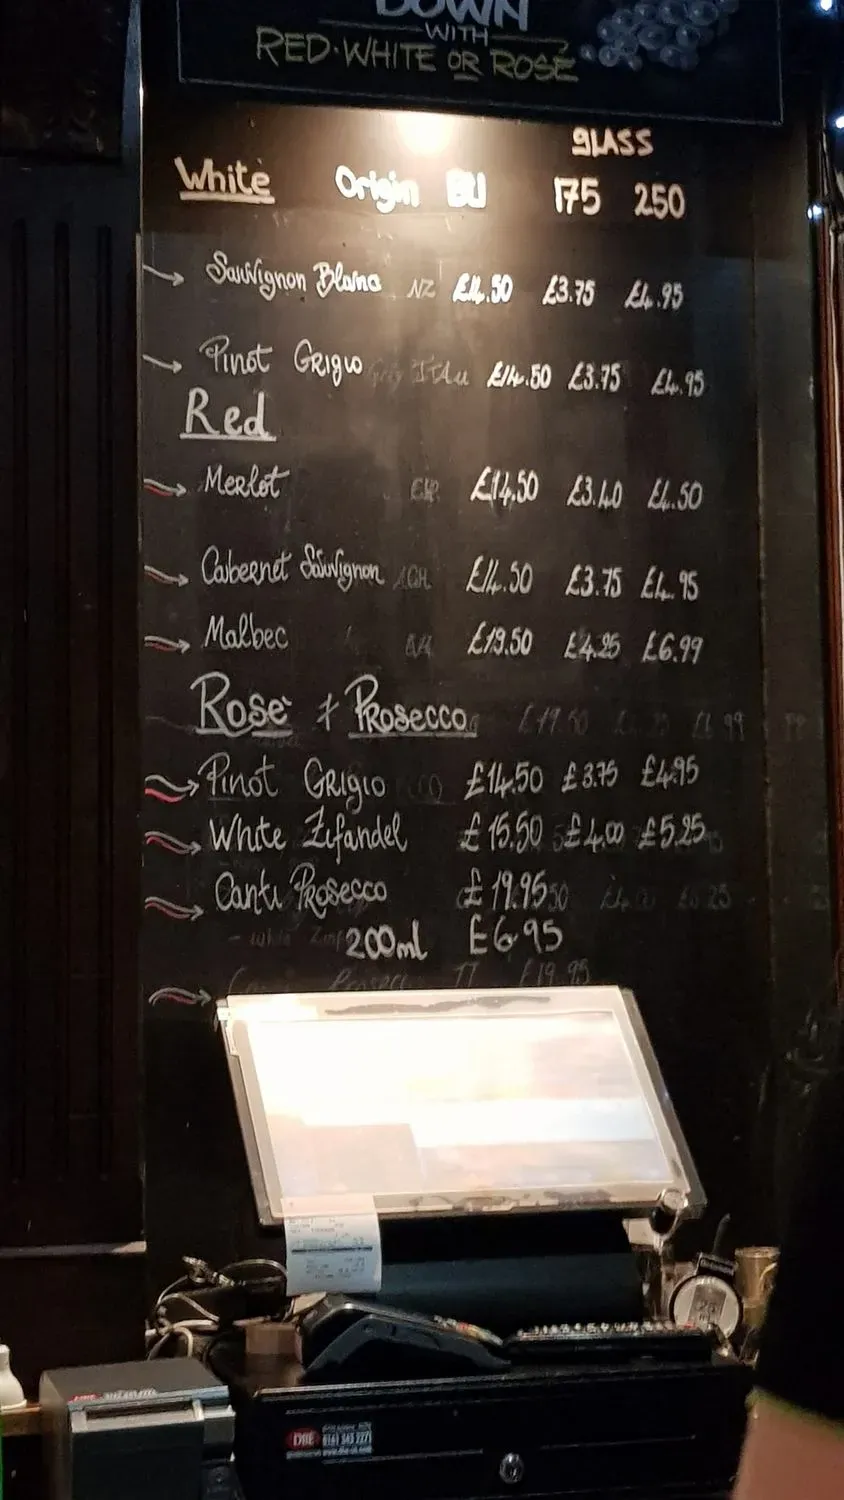 DOWN
WITH
RED·WHITE OR ROSÉ
GLASS
White Origin 175 250
Sauvignon Blanc NZ £14.50 £3.75 £4.95
Pinot Grigio £14.50 £3.75 £4.95
Red
Merlot £14.50 £3.40 £4.50
Cabernet Sauvignon £14.50 £3.75 £4.95
Malbec £19.50 £4.25 £6.99
Rosé + Prosecco
Pinot Grigio £14.50 £3.75 £4.95
White Zifandel £15.50 £4.00 £5.25
Canti Prosecco £19.95
200ml £6.95
£19.95
0161 343 2271